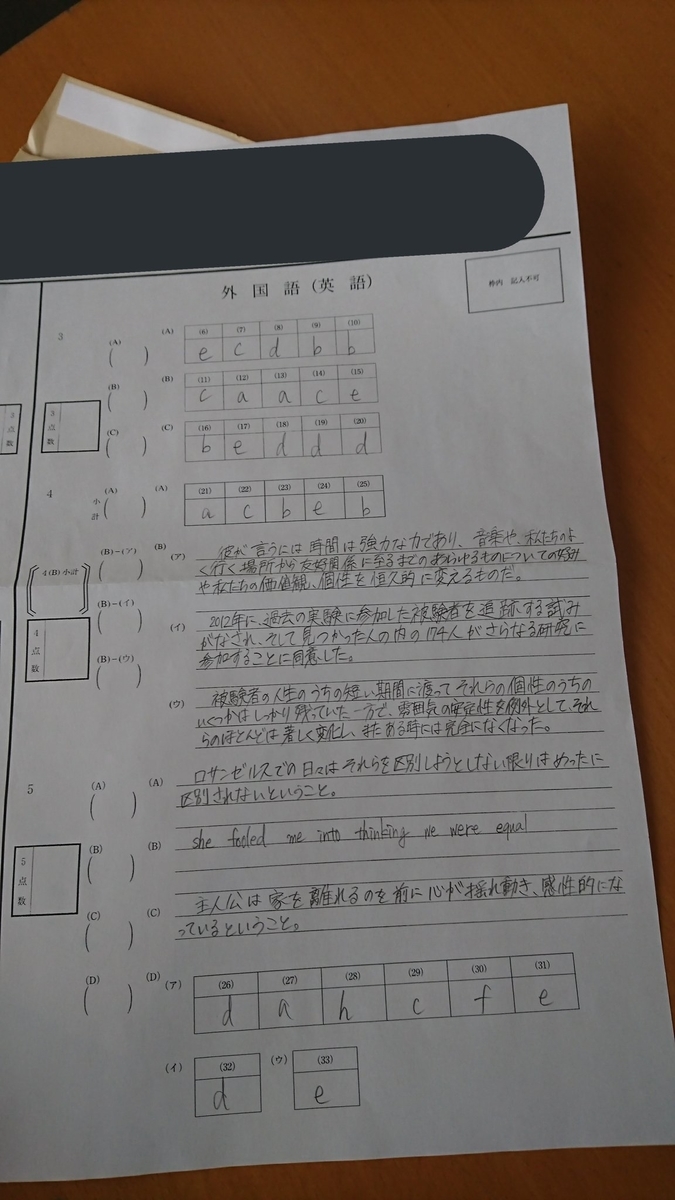 外国語(英語)
枠内 記入不可
3
(A) ( ) (A) (6) (7) (8) (9) (10)
e c d b b
(B) ( ) (B) (11) (12) (13) (14) (15)
c a a c e
3点数
3点数
(C) ( ) (C) (16) (17) (18) (19) (20)
b e d d d
4
小計 (A) ( ) (A) (21) (22) (23) (24) (25)
a c b e b
4(B)小計
(B)-(ア) ( ) (B) (ア) 彼が言うには時間は強力な力であり、音楽や、私たちのよ
く行く場所から友好関係に至るまでのあらゆるものについての好み
や私たちの価値観、個性を恒久的に変えるものだ。
(B)-(イ) ( ) (イ) 2012年に、過去の実験に参加した被験者を追跡する試み
がなされ、そして見つかった人の内の174人がさらなる研究に
参加することに同意した。
4点数
(B)-(ウ) ( ) (ウ) 被験者の人生のうちの短い期間に渡ってそれらの個性のうちの
いくつかはしっかり残っていた一方で、雰囲気の安定性を例外として、それ
らのほとんどは著しく変化し、またある時には完全になくなった。
5
(A) ( ) (A) ロサンゼルスでの日々はそれらを区別しようとしない限りはめったに
区別されないということ。
5点数
(B) ( ) (B) she fooled me into thinking we were equal
(C) ( ) (C) 主人公は家を離れるのを前に心が揺れ動き、感性的にな
っているということ。
(D) ( ) (D) (ア) (26) (27) (28) (29) (30) (31)
d a h c f e
(イ) (32) (ウ) (33)
d e